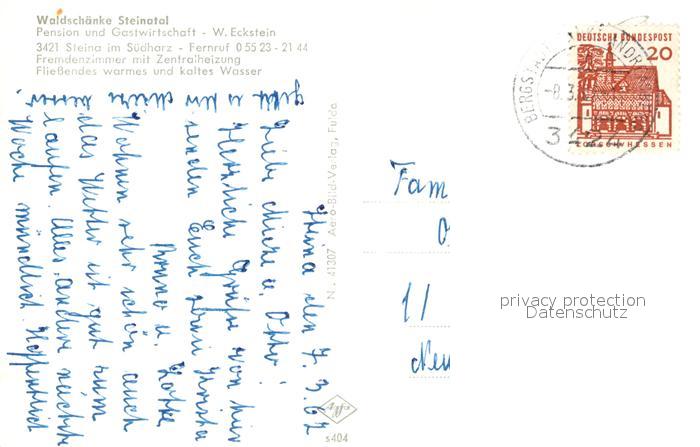 Waldschänke Steinatal
Pension und Gastwirtschaft - W. Eckstein
3421 Steina im Südharz - Fernruf 0 55 23 - 21 44
Fremdenzimmer mit Zentralheizung
Fließendes warmes und kaltes Wasser
DEUTSCHE BUNDESPOST
20
LORSCH HESSEN
BERGSTADT
-8.3.6
342
Steina den 7.3.67
Liebe Mieze u. Otto!
Herzliche Grüße von hier
senden Euch
Bruno u. Lotte
Wohnen sehr schön auch
das Wetter ist gut zum
laufen. Alles andere nächste
Woche mündlich. Hoffentlich
geht es besser.
N. 41307 Aero-Bild-Verlag, Fulda
Agfa
s404
Fam
1/
Neu
privacy protection
Datenschutz